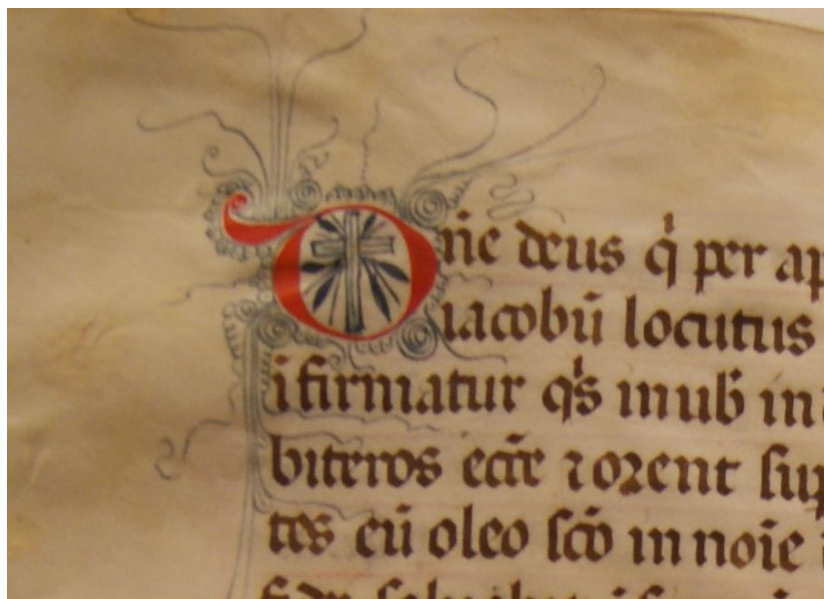 Dn̄e deus q̍ per ap
iacobū locutus
ifirmatur q̄s in uob̄ in
biteros eccl̄e ⁊ orent sup
tes eū oleo sc̄o in noīe